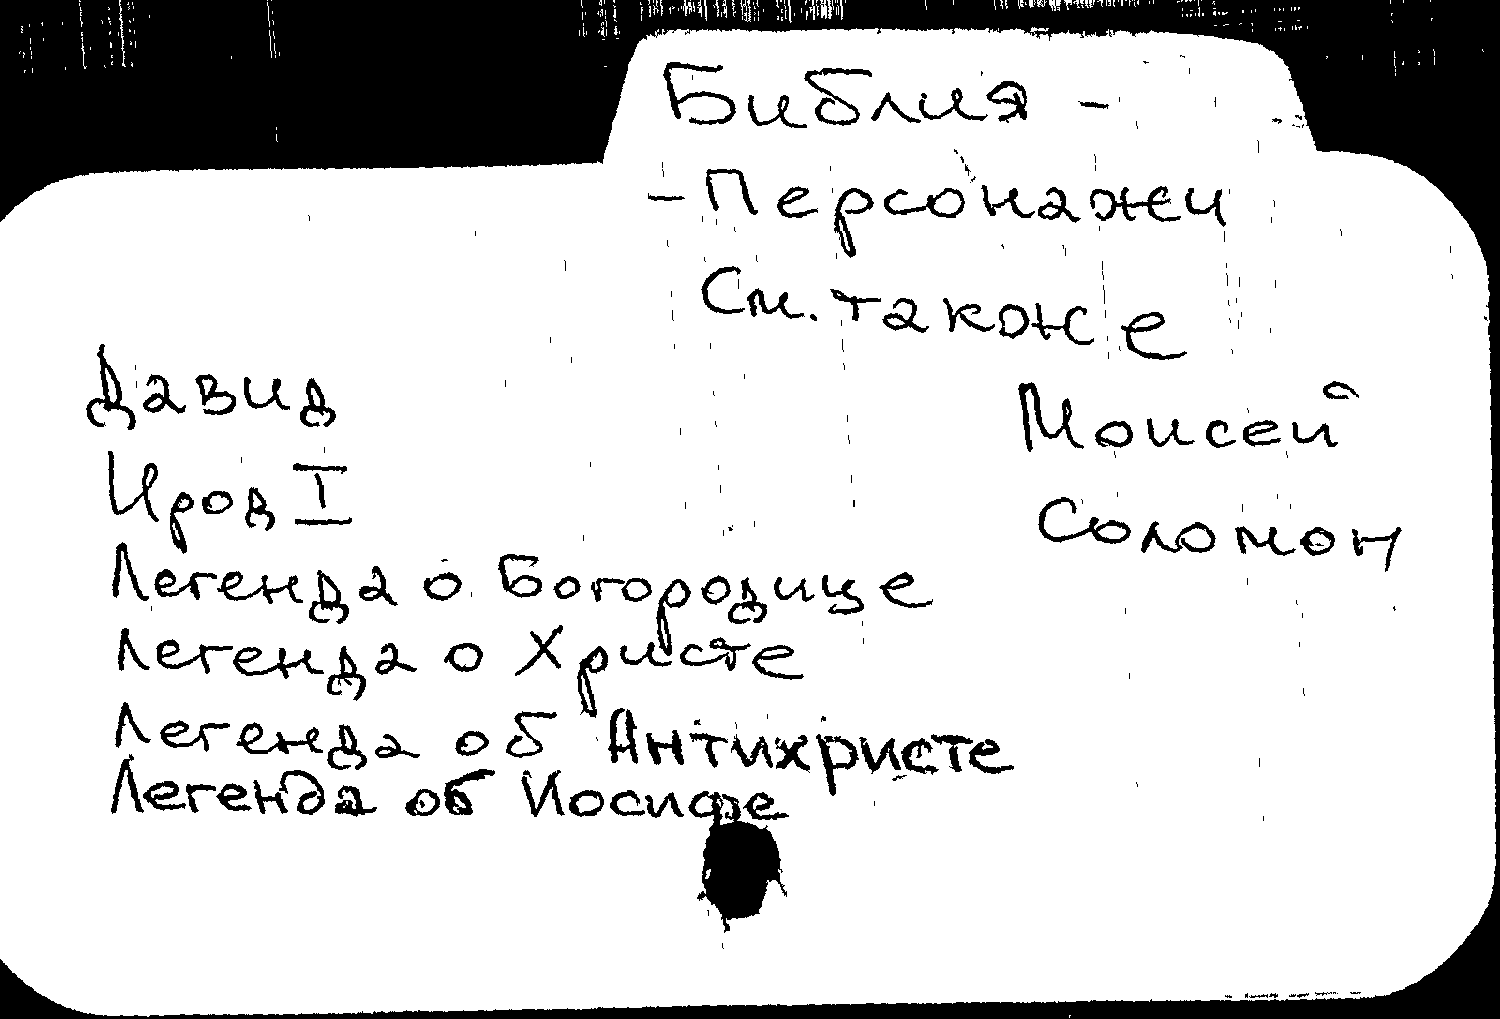 Библия -
- Персонажи
См. также
Давид
Ирод I
Легенда о Богородице
Легенда о Христе
Легенда об Антихристе
Легенда об Иосифе
Моисей
Соломон